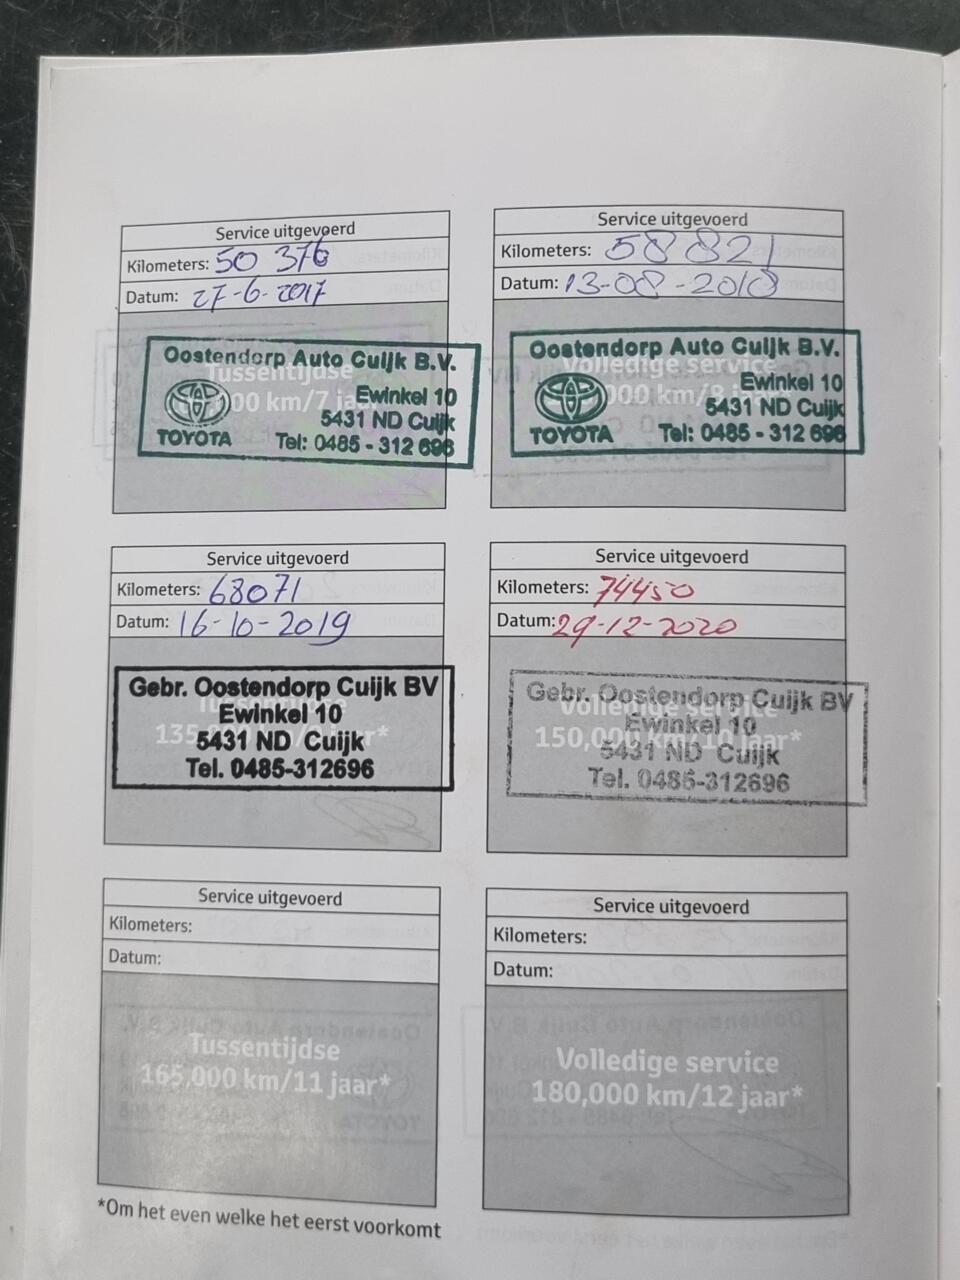 Service uitgevoerd
Kilometers: 50 376
Datum: 27-6-2017
Oostendorp Auto Cuijk B.V.
Tussentijdse
000 km/7 jaar*
Ewinkel 10
5431 ND Cuijk
TOYOTA
Tel: 0485 - 312 696
Service uitgevoerd
Kilometers: 58821
Datum: 13-08-2018
Oostendorp Auto Cuijk B.V.
Volledige service
000 km/8 jaar*
Ewinkel 10
5431 ND Cuijk
TOYOTA
Tel: 0485 - 312 696
Service uitgevoerd
Kilometers: 68071
Datum: 16-10-2019
Gebr. Oostendorp Cuijk BV
Tussentijdse
Ewinkel 10
135
5431 ND Cuijk
Tel. 0485-312696
Service uitgevoerd
Kilometers: 74450
Datum: 29-12-2020
Gebr. Oostendorp Cuijk BV
Volledige service
Ewinkel 10
150,000 km/10 jaar*
5431 ND Cuijk
Tel. 0485-312696
Service uitgevoerd
Kilometers:
Datum:
Tussentijdse
165,000 km/11 jaar*
Service uitgevoerd
Kilometers:
Datum:
Volledige service
180,000 km/12 jaar*
*Om het even welke het eerst voorkomt